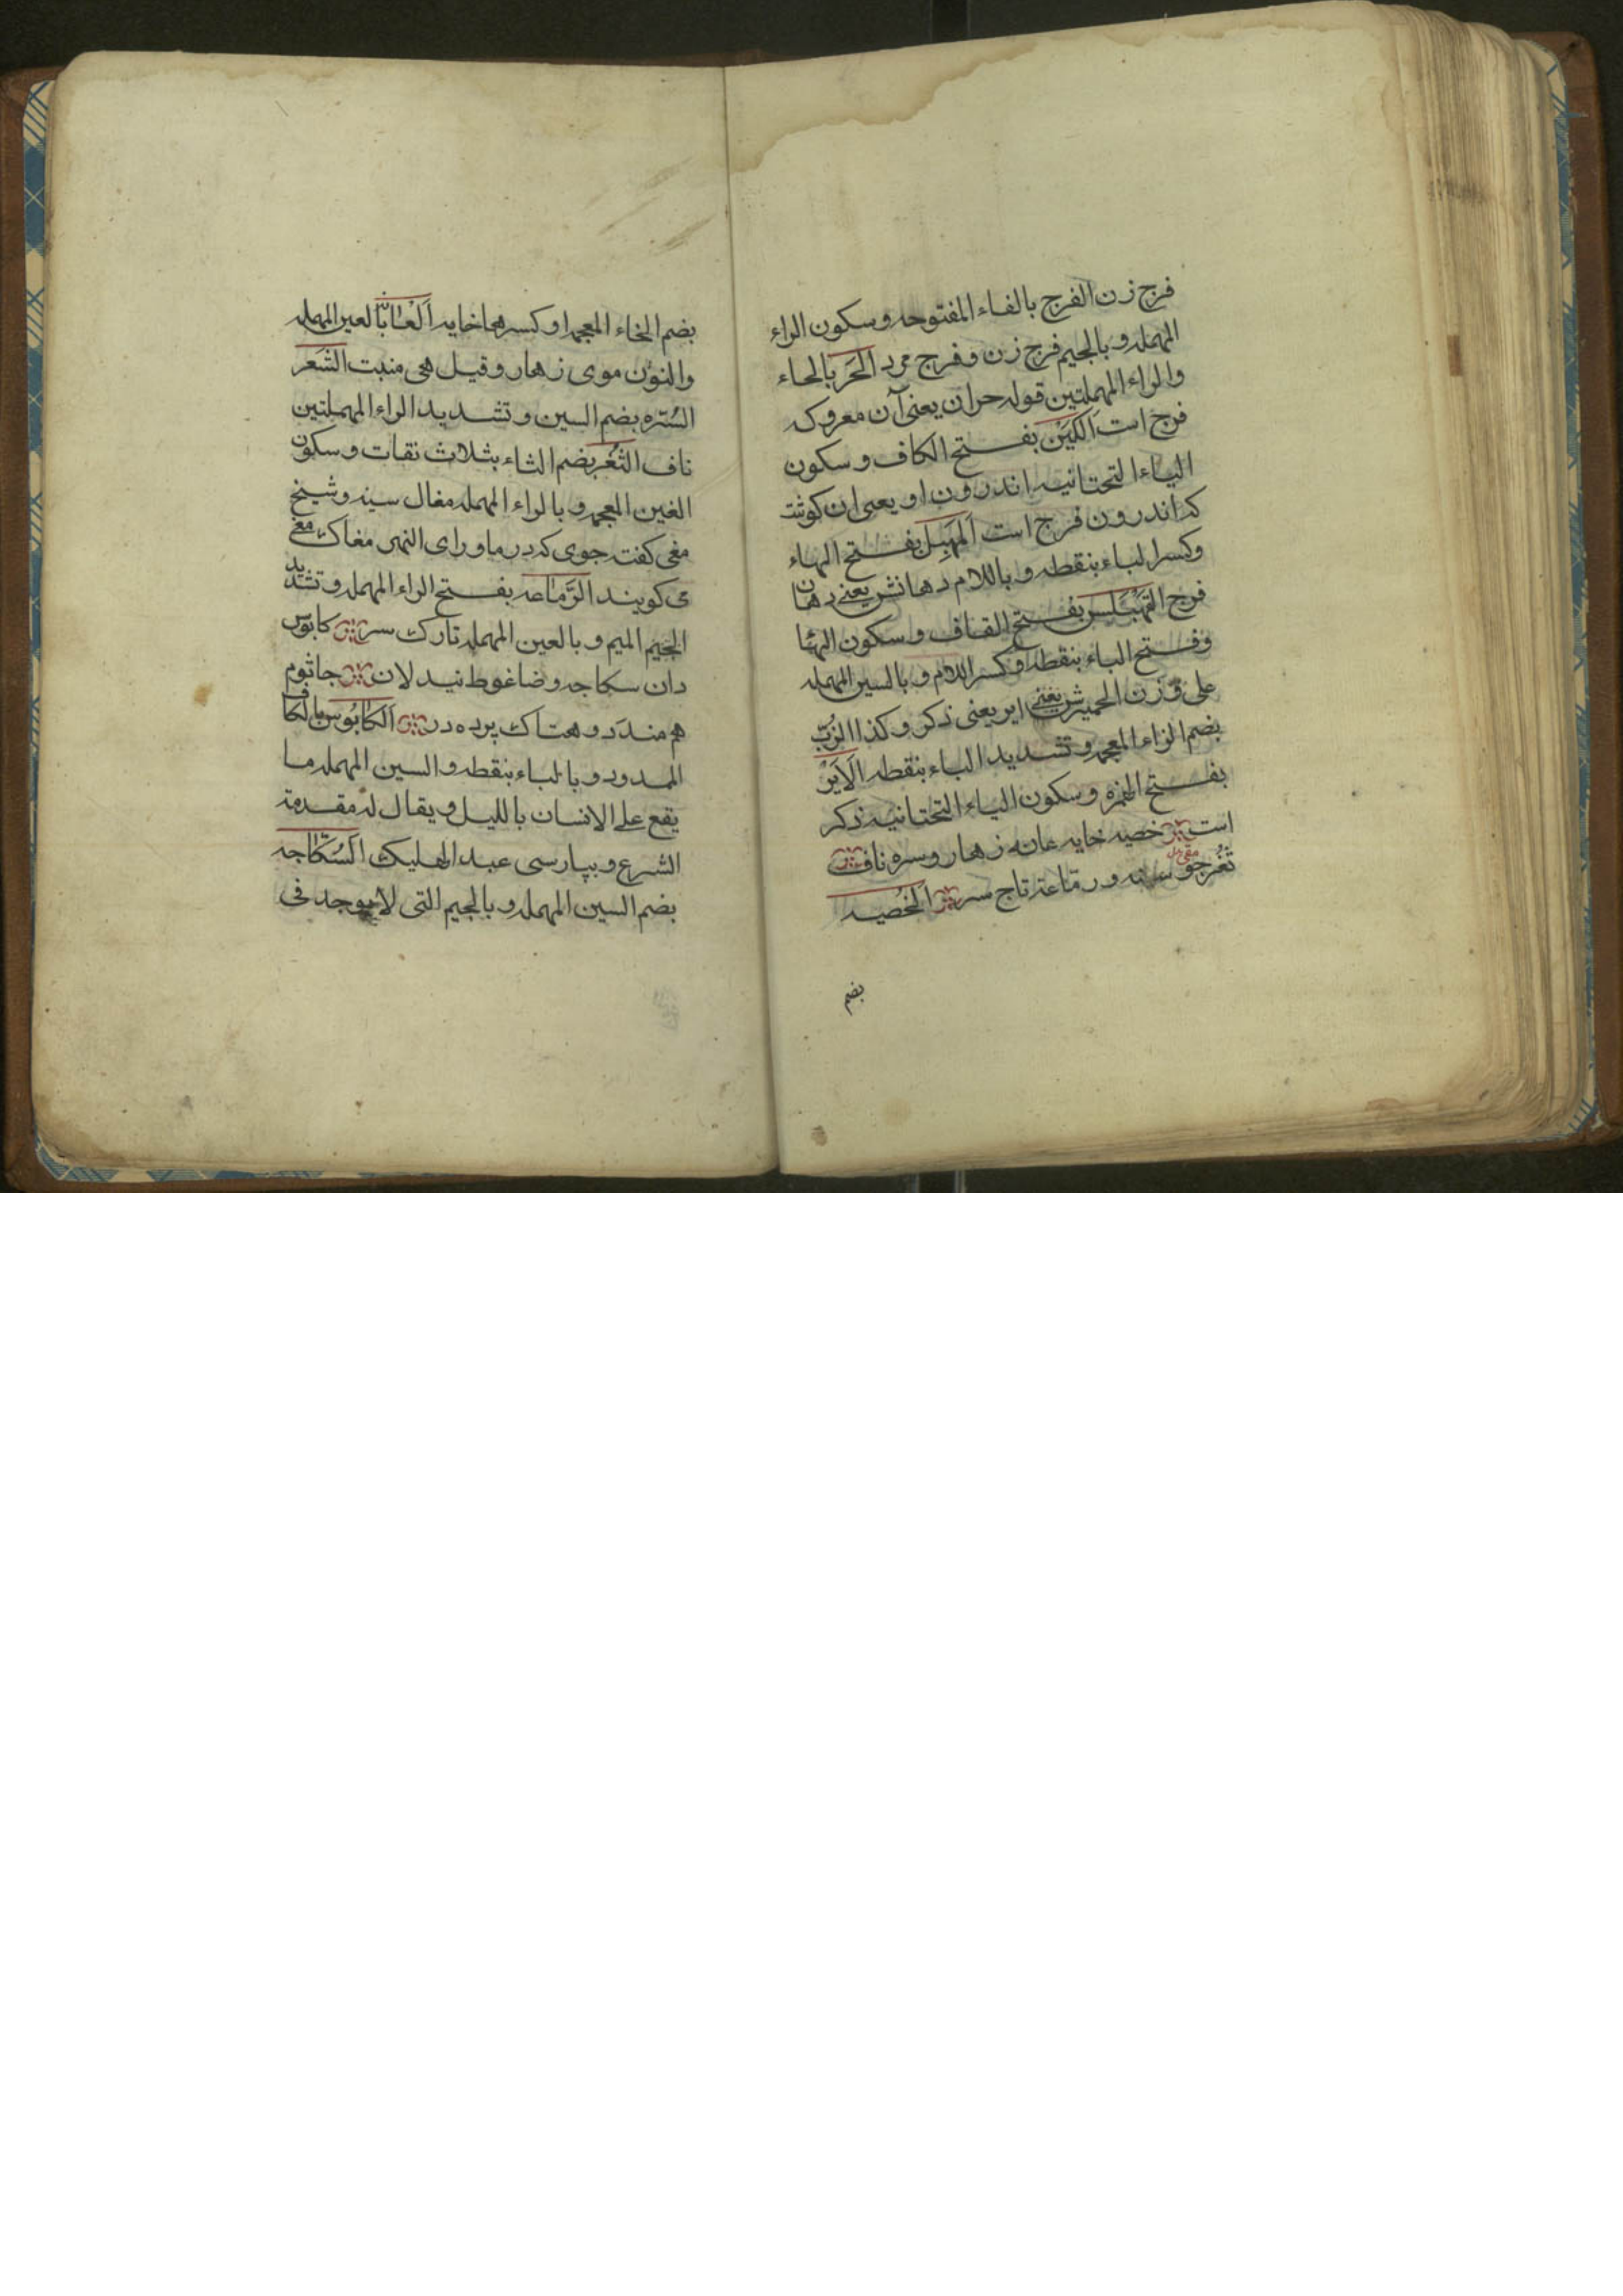 فرج زن الفرج بالفاء المفتوحه وسكون الراء
المهمله و بالجيم فرج زن و فرج مرد الحَر بالحاء
والراء المهملتين قوله حران يعنى آن معروك
فرج است اَلكَيْن بفتح الكاف و سكون
الياء التحتانيه اندرون او يعنى ان كوشت
كه اندرون فرج است اَلمَهبِل بفتح الهاء
وكسر الباء بنقطه و باللام دهانش يعنى دهان
فرج القَهْبَلِس بفتح القاف و سكون الهاء
وفتح الباء بنقطه و كسر اللام و بالسين المهمله
على وزن الحميرش يعنى اير يعنى ذكر و كذا الزُبّ
بضم الزاء المعجمه و تشديد الباء بنقطه اَلاَيْرْ
بفتح الهمزه و سكون الياء التحتانيه ذكر
است خصيه خايه عانه زهار و سره ناف
ثُغُر جو سينه و رماعة تاج سر اَلخُصيه
بضم
بضم الخاء المعجمه او كسرها خايه اَلعَانَة بالعين المهمله
والنون موى زهار و قيل هى منبت الشَعر
السُرّه بضم السين و تشديد الراء المهملتين
ناف الثُغُر بضم الثاء بثلاث نقات و سكون
الغين المعجمه و بالراء المهمله مغال سينه و شيخ
مغى كفته جوى كه در ماوراى النهر مغاك مغ
مى كويند الرَّمَاعه بفتح الراء المهمله و تشديد
الجيم الميم و بالعين المهمله تارك سر كابوس
دان سكاجه و ضاغوط نيدلان جاثوم
هم مندَد و هتاك پرده در اَلكابُوس بالكاف
الممدوده و بالباء بنقطه و السين المهمله ما
يقع على الانسان بالليل و يقال له مقدمة
الشرع و بپارسى عبد الهليك اَلسُكَاجه
بضم السين المهمله و بالجيم التى لا يوجد فى